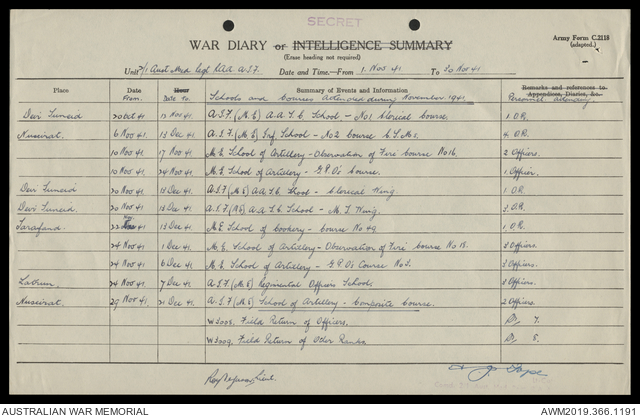 SECRET
WAR DIARY or INTELLIGENCE SUMMARY
Army Form C.2118
(adapted.)
(Erase heading not required)
Unit 2/1 Aust Med Regt RAA A.I.F. Date and Time.—From 1. Nov 41 To 30 Nov 41
Place Date From. Hour Date to. Summary of Events and Information Remarks and references to Appendices, Diaries, &c.
Schools and Courses Attended during November 1941. Personnel attending.
Deir Suneid 20 Oct 41 13 Nov 41 A.I.F. (M.E) A.A.S.C. School - No1 Clerical Course. 1. O.R.
Nuseirat. 6 Nov 41. 13 Dec 41 A.I.F. (M.E) Inf. School - No2 Course 4. O.R.
10 Nov 41 17 Nov 41 M.E. School of Artillery - Observation of Fire Course No 16. 2 Officers.
10 Nov 41 24 Nov 41 M.E. School of Artillery - G.P.O's Course. 1. Officer.
Deir Suneid 20 Nov 41. 13 Dec 41 A.I.F. (M.E) A.A.S.C. School - Clerical Wing. 1. O.R.
Deir Suneid. 20 Nov 41. 13 Dec 41 A.I.F. (M.E) A.A.S.C. School - M.T. Wing. O.R.
Sarafand. 23 Nov 41 13 Dec 41 M.E School of Cookery - Course No 49. 1. O.R.
24 Nov 41 1 Dec 41. M.E. School of Artillery - Observation of Fire Course No 18. Officers.
24 Nov 41 6 Dec 41 M.E. School of Artillery - G.P.O's Course No 2. Officers.
Latrun. 24 Nov 41. 7 Dec 41 A.I.F. (M.E) Regimental Officers School. Officers.
Nuseirat. 29 Nov 41. 21 Dec 41. A.I.F (M.E) School of Artillery - Composite Course. 2 Officers.
W3008. Field Return of Officers. 7.
W3009. Field Return of Other Ranks.
Lieut.
AUSTRALIAN WAR MEMORIAL AWM2019.366.1191